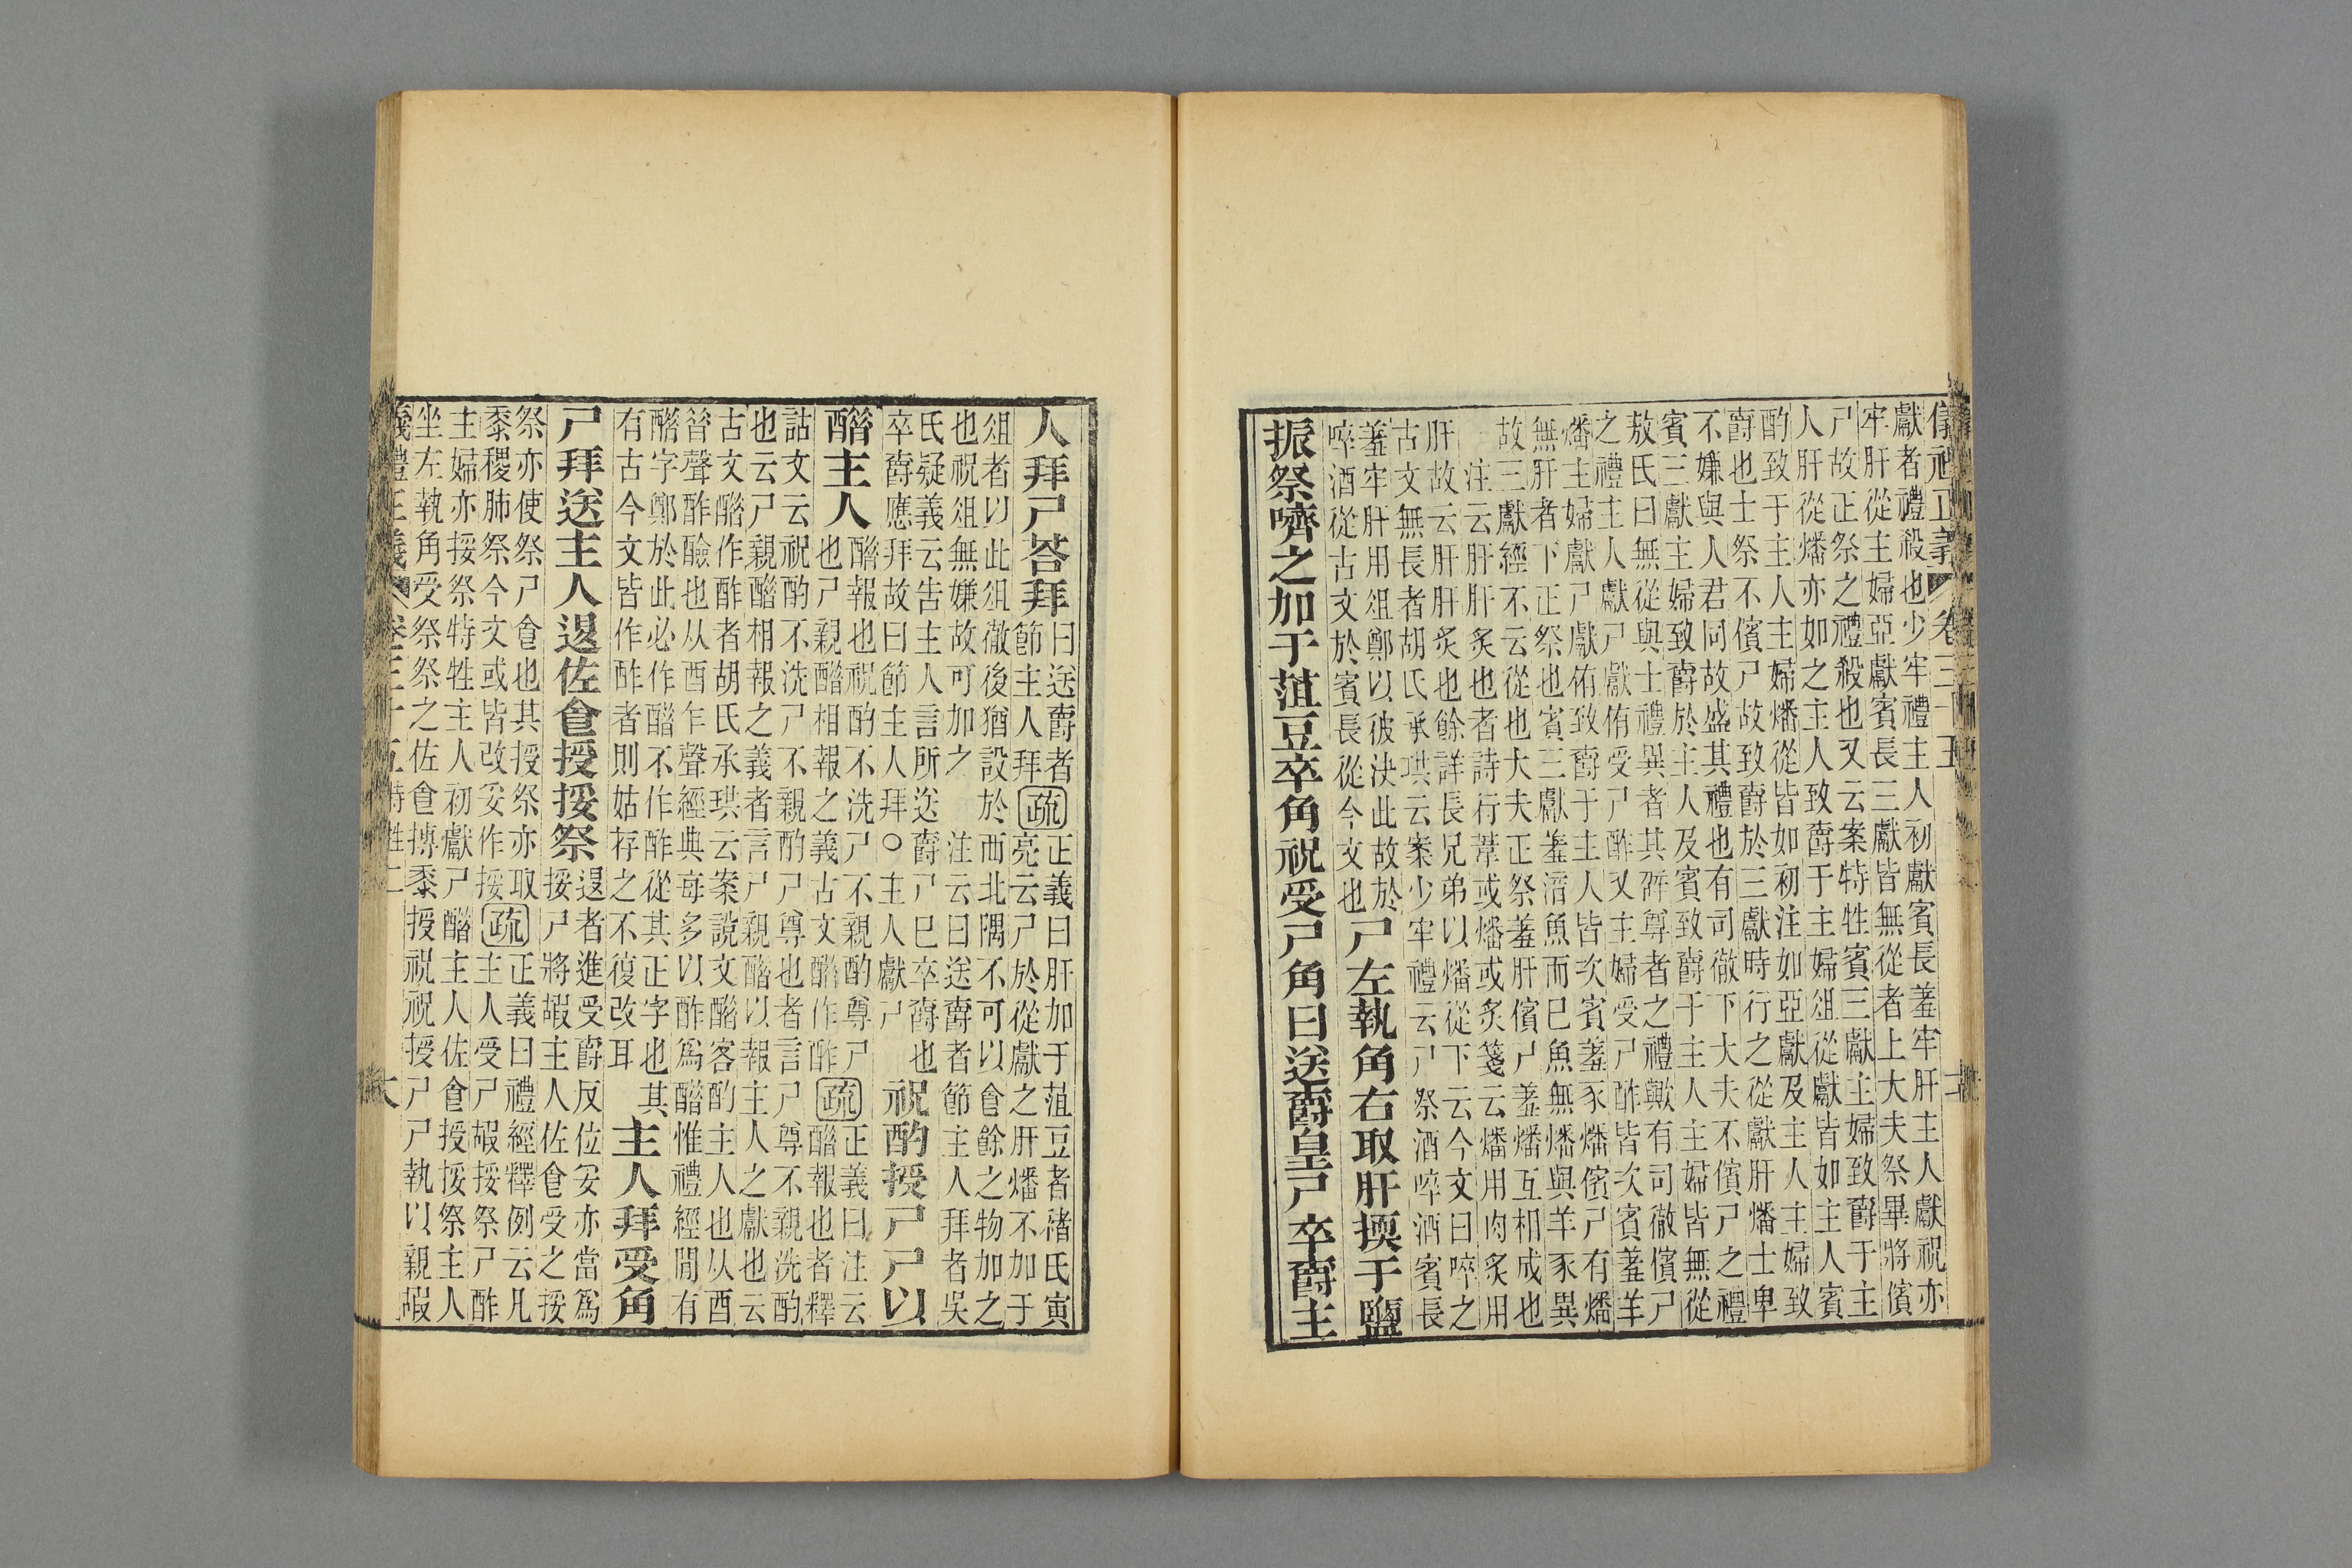 儀禮正義 卷三十五
獻者禮殺也少牢禮主人初獻賓長羞牢肝主人獻祝亦
牢肝從主婦亞獻賓長三獻皆無從者上大夫祭畢將儐
尸故正祭之禮殺也又云案特牲賓三獻主婦致爵于主
人肝從燔亦如之主人致爵于主婦俎從獻皆如主人賓
酌致于主人主婦燔從皆如初注如亞獻及主人主婦致
爵也士祭不儐尸故致爵於三獻時行之從獻肝燔士卑
不嫌與人君同故盛其禮也有司徹下大夫不儐尸之禮
賓三獻主婦致爵於主人及賓致爵于主人主婦皆無從
敖氏曰無從與士禮異者其辟尊者之禮歟有司徹儐尸
之禮主人獻尸獻侑受尸酢又主婦受尸酢皆次賓羞羊
燔主婦獻尸獻侑致爵于主人皆次賓羞豕燔儐尸有燔
無肝者下正祭也賓三獻羞湆魚而已魚無燔與羊豕異
故三獻經不云從也大夫正祭羞肝儐尸羞燔互相成也
注云肝肝炙也者詩行葦或燔或炙箋云燔用肉炙用
肝故云肝肝炙也餘詳長兄弟以燔從下云今文曰啐之
古文無長者胡氏承珙云案少牢禮云尸祭酒啐酒賓長
羞牢肝用俎鄭以彼決此故於
啐酒從古文於賓長從今文也
尸左執角右取肝擩于鹽
振祭嚌之加于菹豆卒角祝受尸角曰送爵皇尸卒爵主
人拜尸荅拜
曰送爵者
節主人拜
疏
正義曰肝加于菹豆者褚氏寅
亮云尸於從獻之肝燔不加于
俎者以此俎徹後猶設於西北隅不可以食餘之物加之
也祝俎無嫌故可加之 注云曰送爵者節主人拜者吳
氏疑義云告主人言所送爵尸已卒爵也
卒爵應拜故曰節主人拜○主人獻尸
祝酌授尸尸以
醋主人
醋報也祝酌不洗尸不親酌尊尸
也尸親醋相報之義古文醋作酢
疏
正義曰注云
醋報也者釋
詁文云祝酌不洗尸不親酌尸尊也者言尸尊不親洗酌
也云尸親醋相報之義者言尸親醋以報主人之獻也云
古文醋作酢者胡氏承珙云案說文醋客酌主人也从酉
昝聲酢醶也从酉乍聲經典每多以酢爲醋惟禮經閒有
醋字鄭於此必作醋不作酢從其正字也其
有古今文皆作酢者則姑存之不復改耳
主人拜受角
尸拜送主人退佐食授挼祭
退者進受爵反位妥亦當爲
挼尸將嘏主人佐食受之挼
祭亦使祭尸食也其授祭亦取
黍稷肺祭今文或皆改妥作挼
疏
正義曰禮經釋例云凡
主人受尸嘏挼祭尸酢
主婦亦挼祭特牲主人初獻尸醋主人佐食授挼祭主人
坐左執角受祭祭之佐食摶黍授祝祝授尸尸執以親嘏